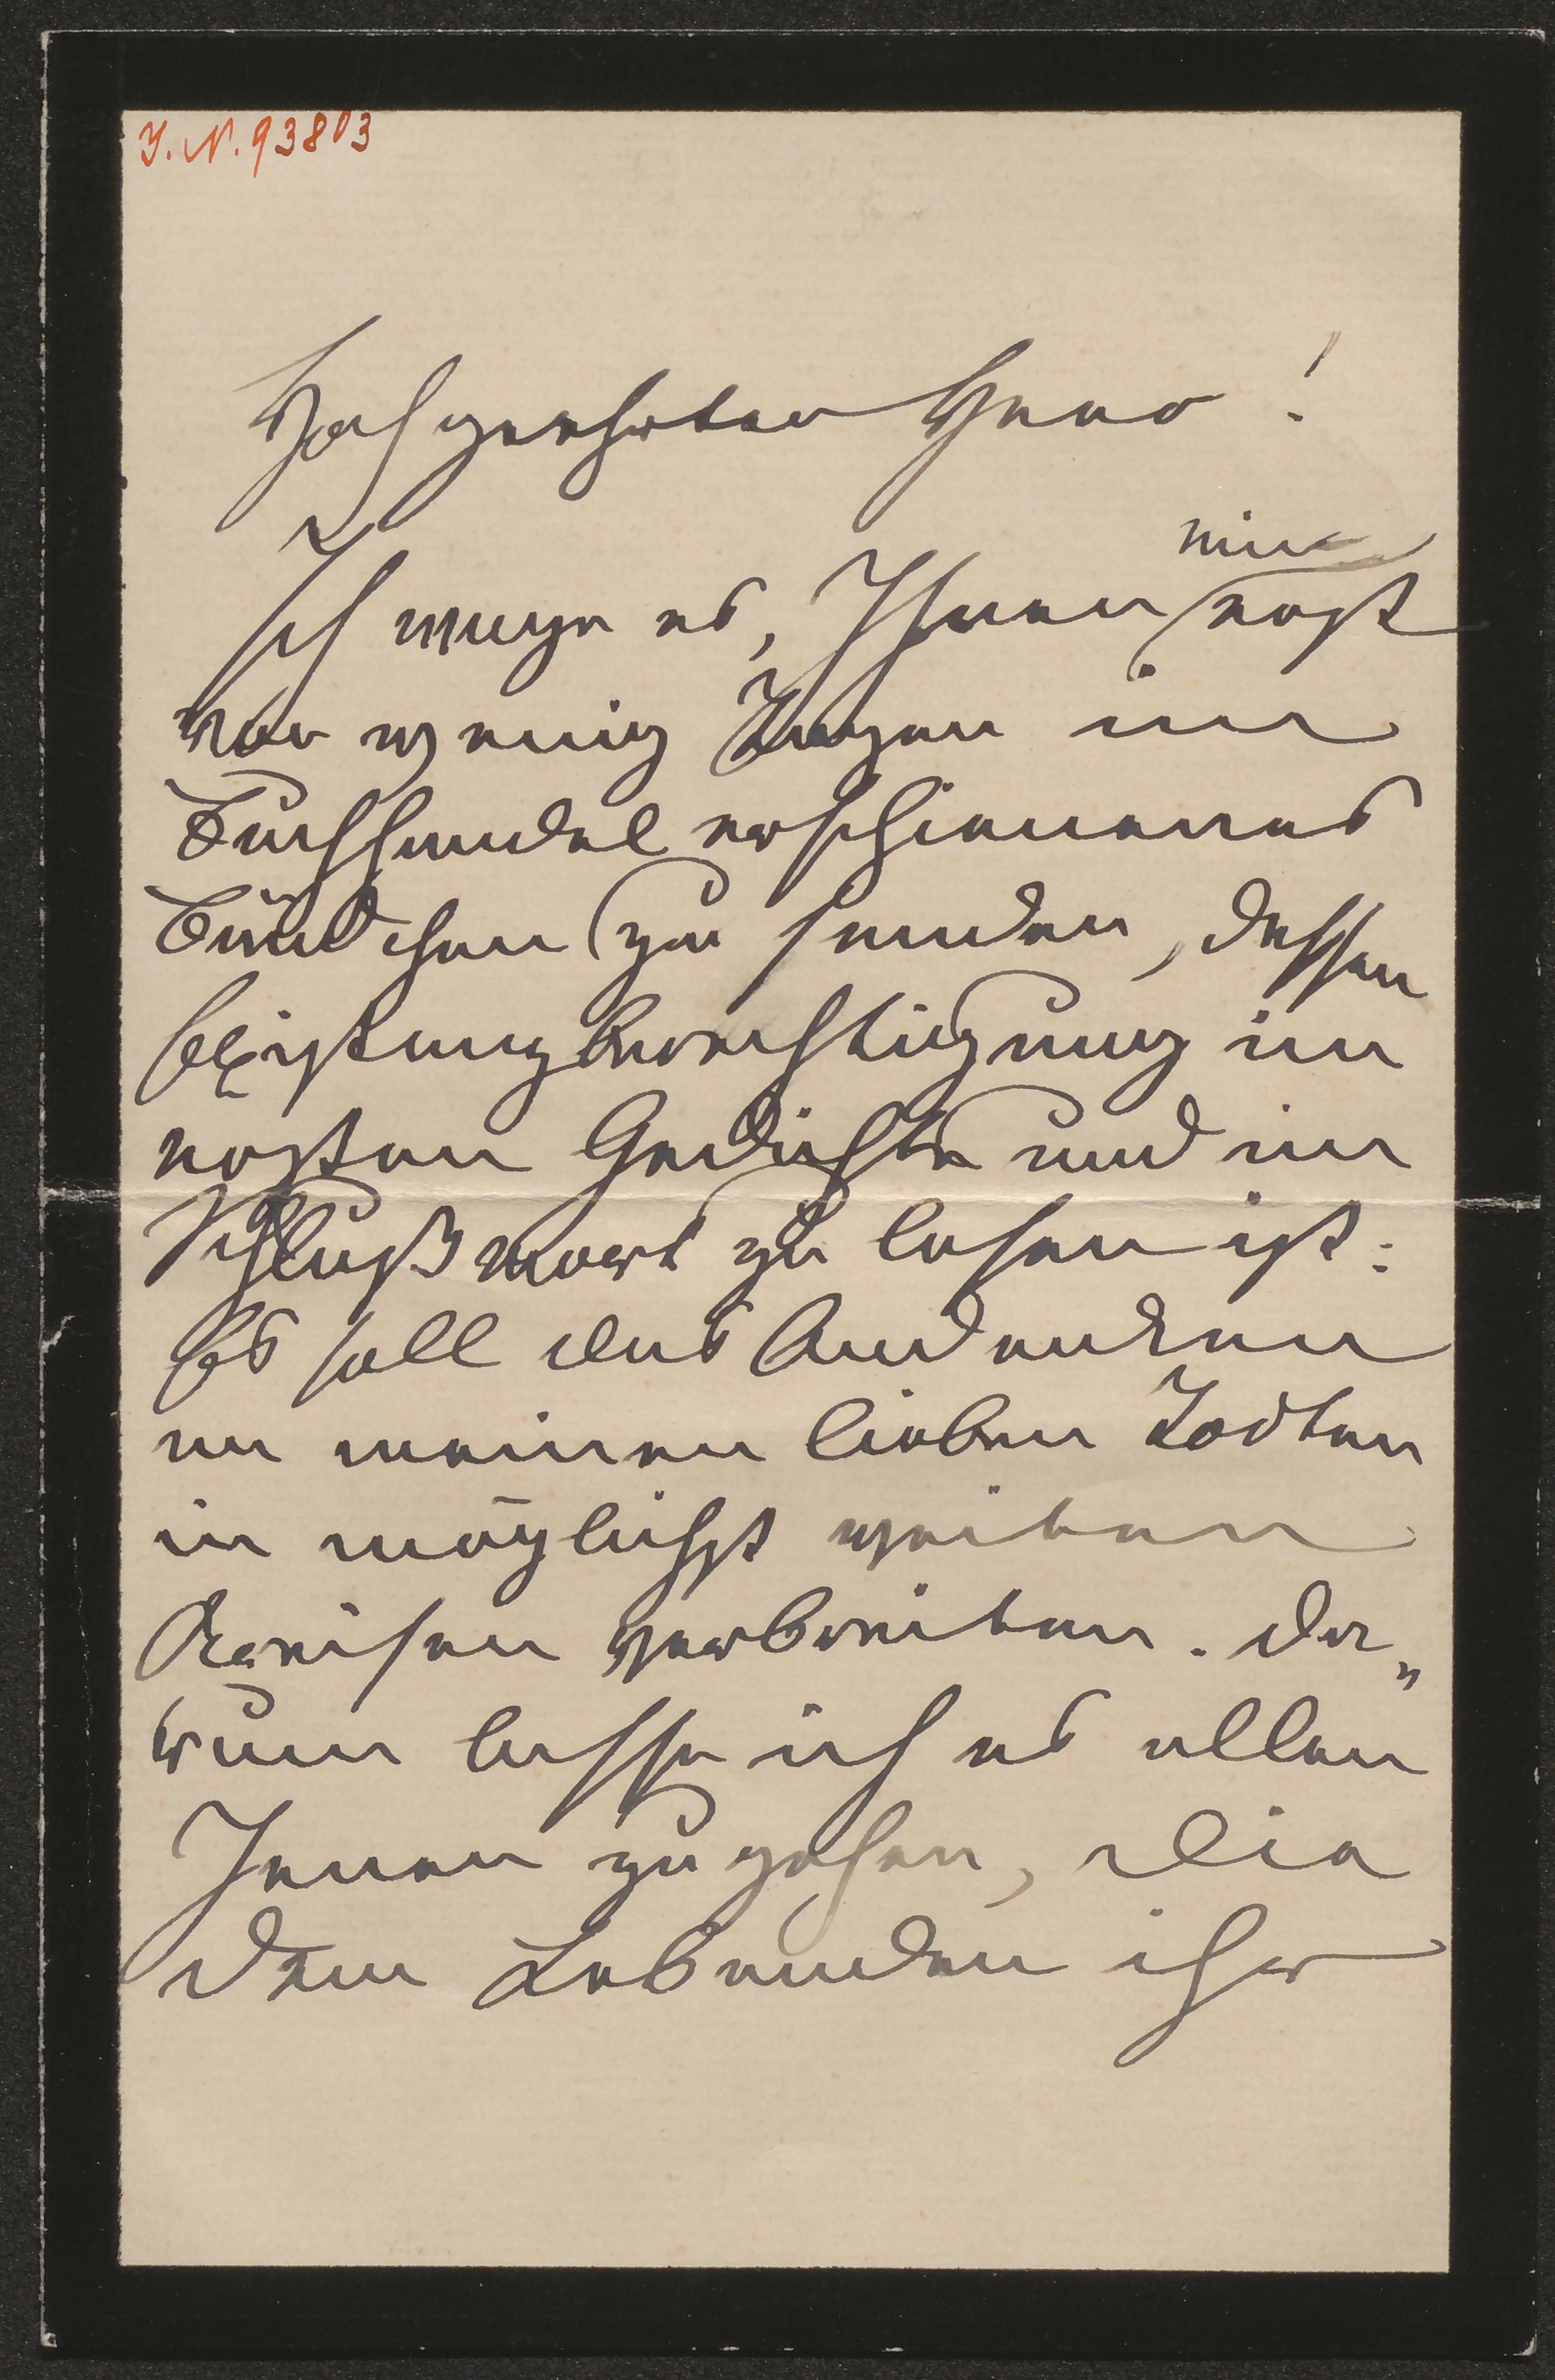 I. N. 93803
Hochgeehrter Herr!
ein
Ich wage es, Ihnen erst
vor wenig Tagen im
Buchhandel erschienenes
Bändchen zu senden, dessen
Existenzberechtigung im
ersten Gedichte und im
Schlußwort zu lesen ist:
Es soll das Andenken
an meinen lieben Todten
in möglichst weiten
Kreisen verbreiten. Da„
rum lasse ich es allen
Jenen zugehen, die
dem Lebenden ihr